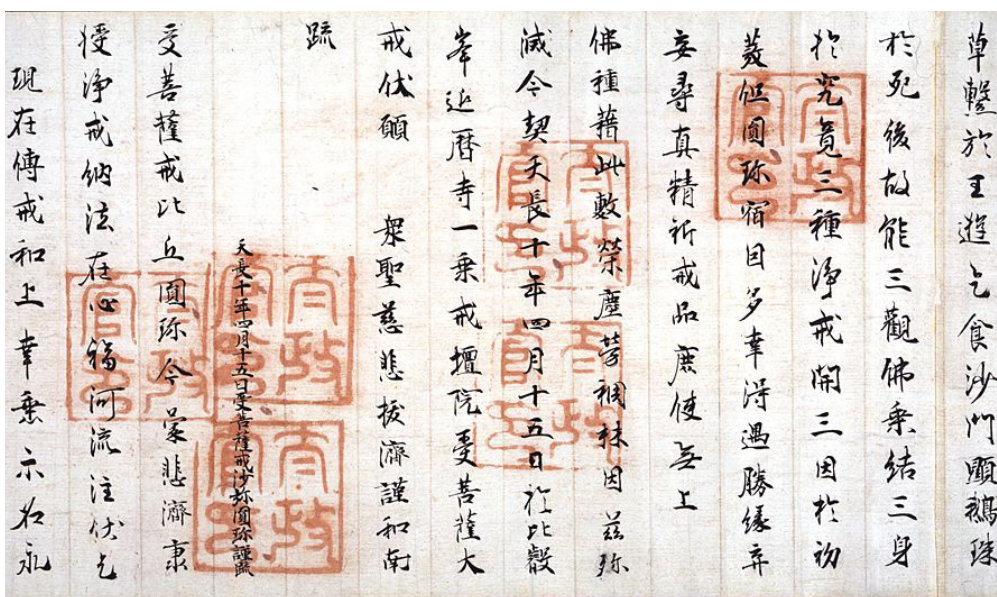 草繫於王遊乞食沙門顯鵝珠
於死後故能三觀佛乗結三身
於究竟三種淨戒開三因於初
發但圓珎宿因多幸得遇勝縁弃
妄尋真精祈戒品庶使無上
佛種藉此敷榮塵勞稠林因茲殄
滅今契天長十年四月十五日於比叡
峯延暦寺一乗戒壇院受菩薩大
戒伏願 衆聖慈悲拔濟謹和南
疏
天長十年四月十五日受菩薩戒沙弥圓珎謹疏
受菩薩戒比丘圓珎今蒙悲濟稟
授淨戒納法在心福河流注伏乞
現在傳戒和上幸垂示名永
太政官印
太政官印
太政官印
太政官印
太政官印
太政官印